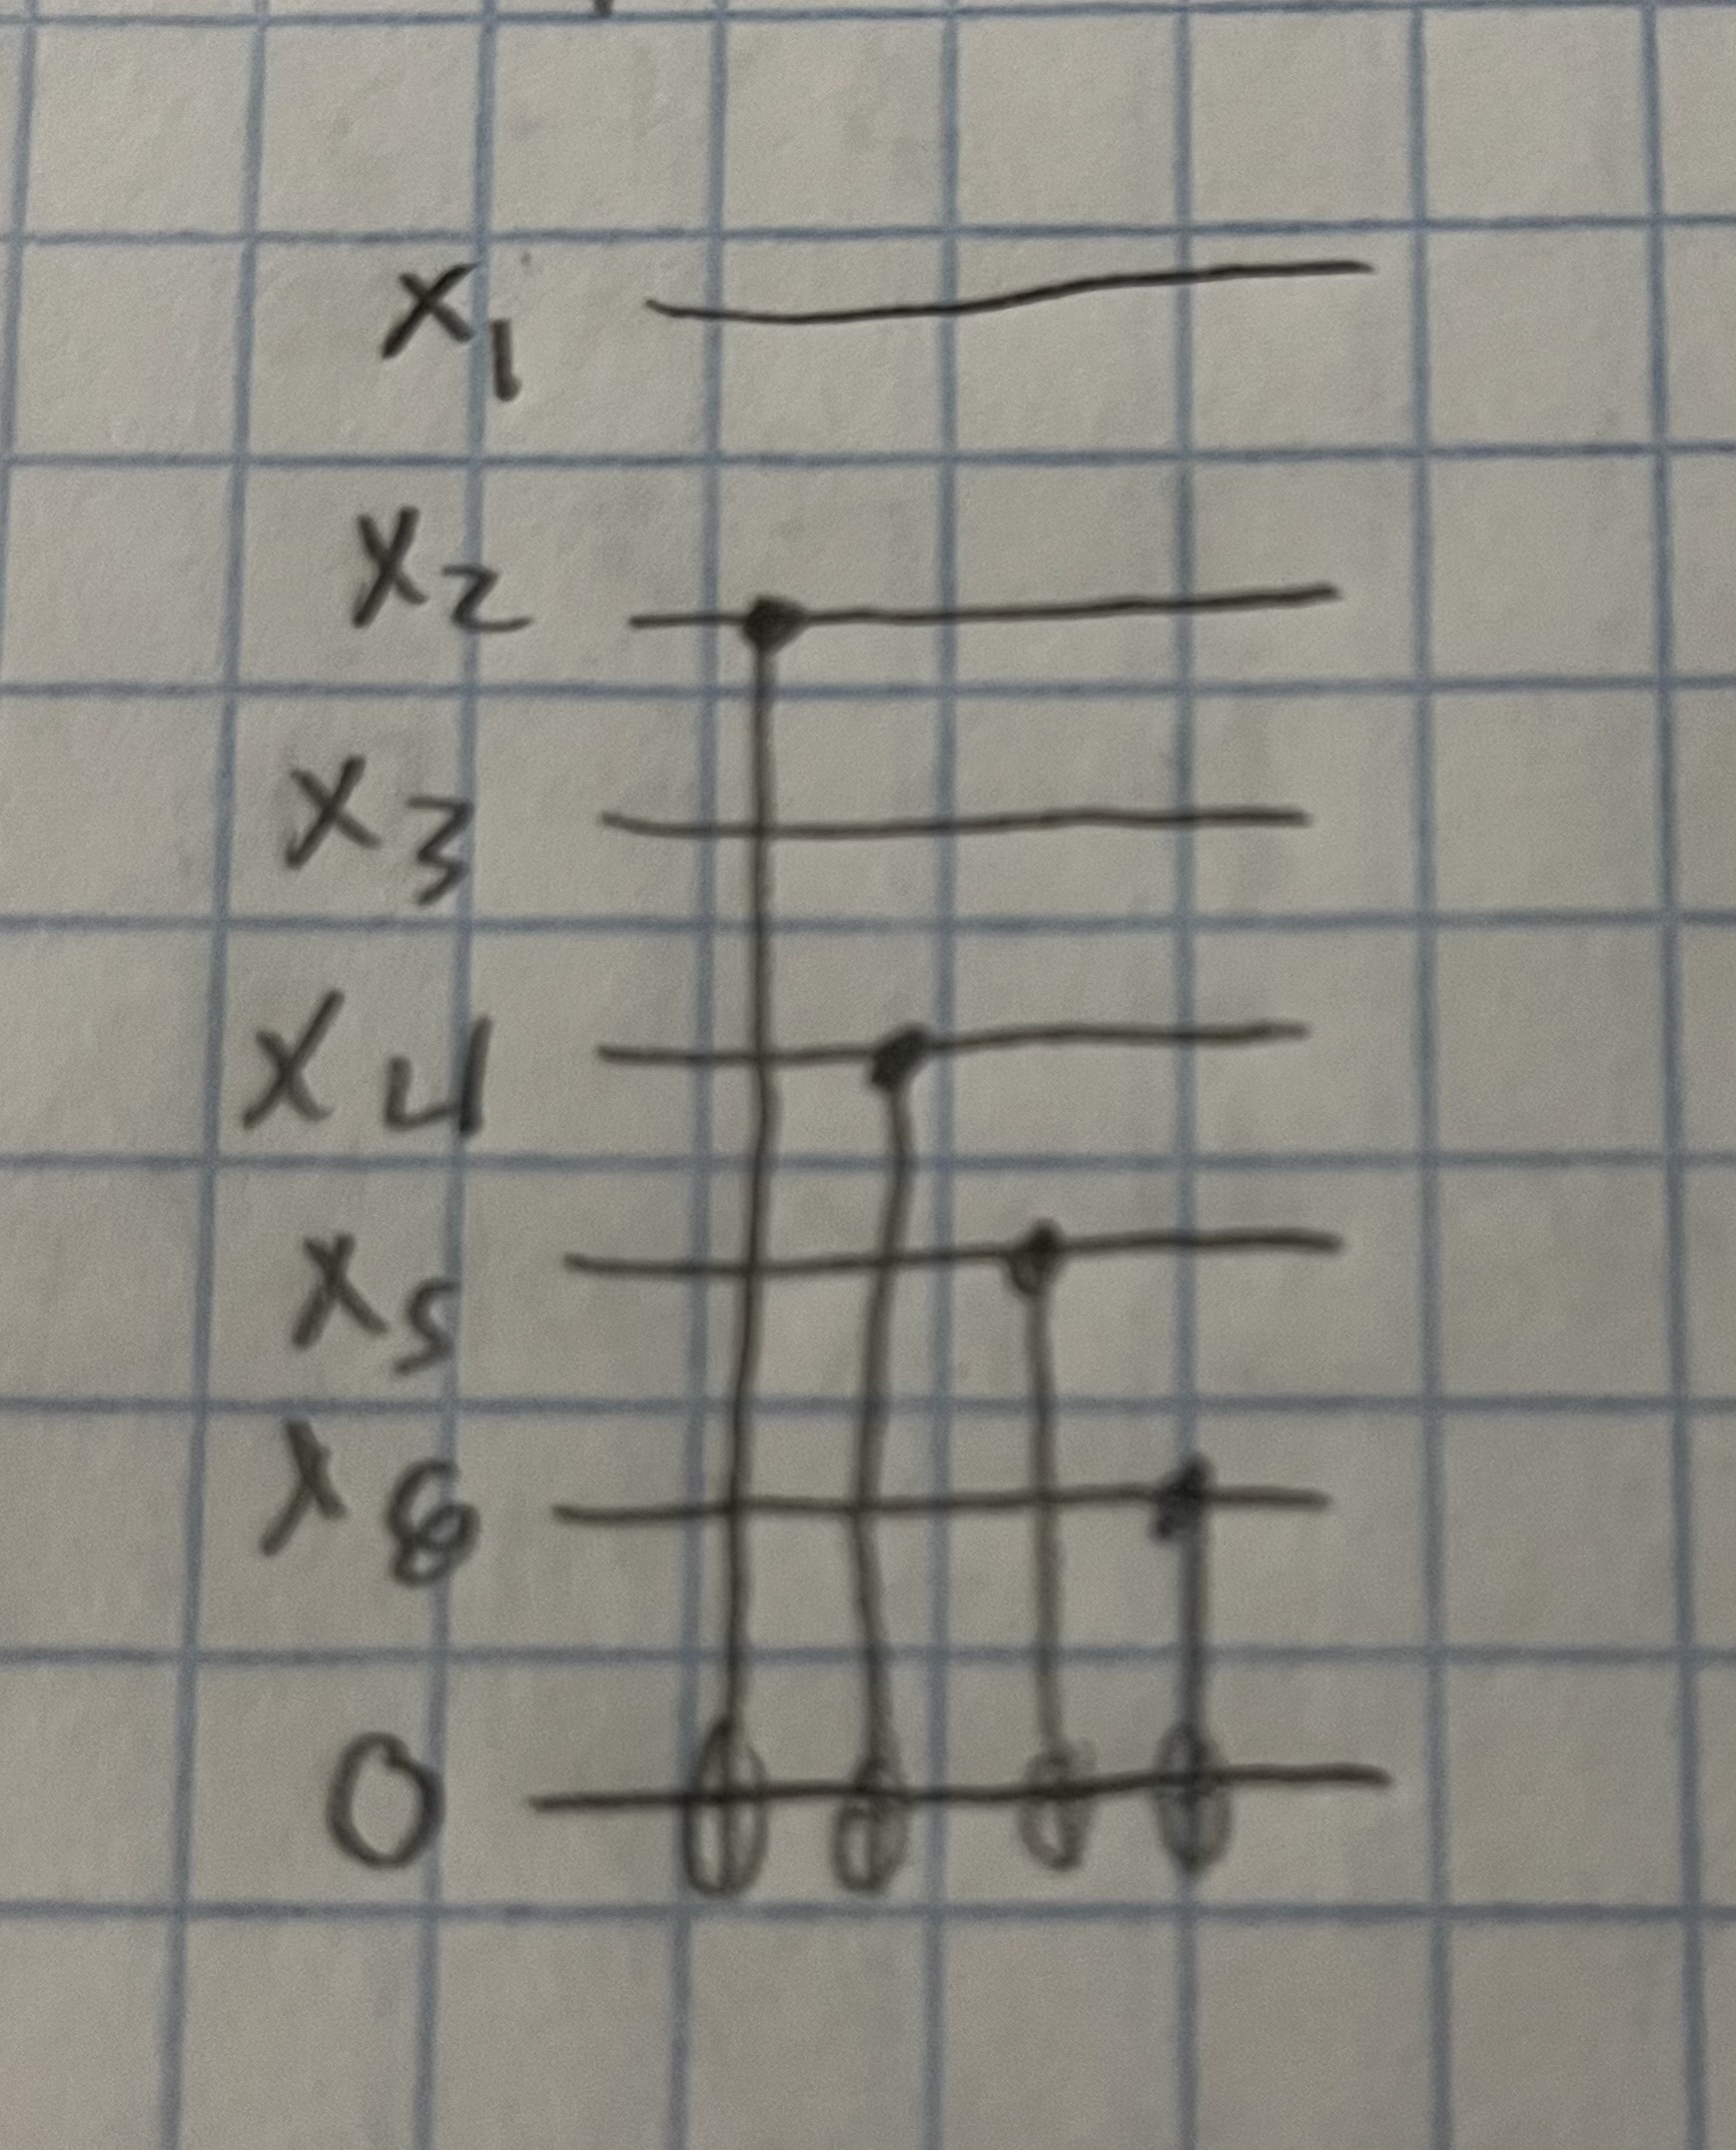 x₁
x₂
x₃
x₄
x₅
x₆
0